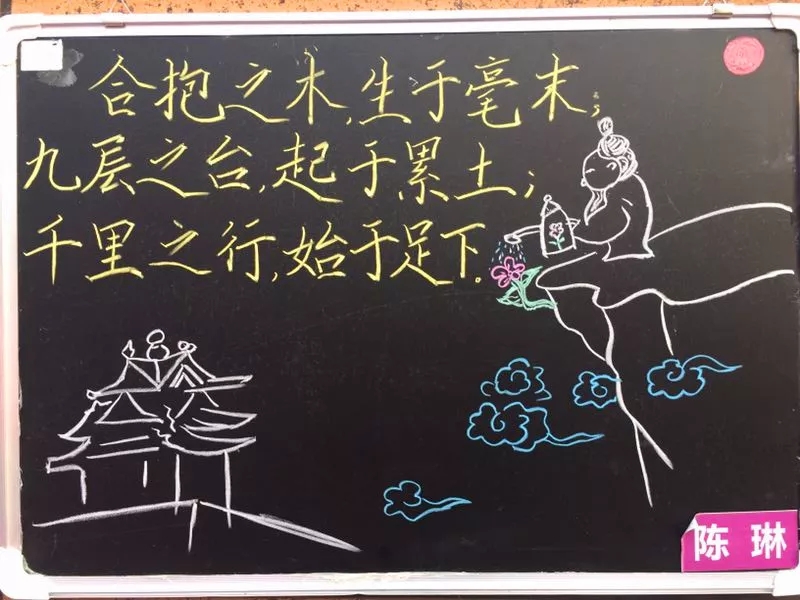 合抱之木,生于毫末;
九层之台,起于累土;
千里之行,始于足下。
陈琳